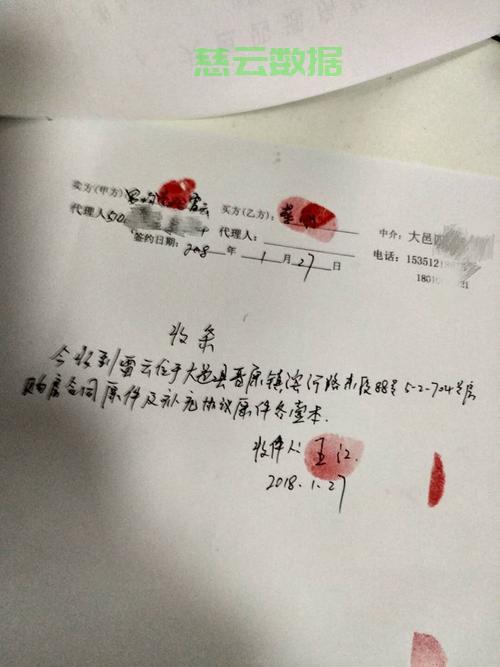 慈云数据
卖方(甲方) 雷云 买方(乙方): 中介: 大邑
代理人 代理人: 电话: 15351
签约日期: 2018 年 1 月 27 日 1801 21
收条
今收到雷云位于大邑县晋原镇滨河路东段88号5-2-704号房
购房合同原件及补充协议原件各壹本.
收件人 王江.
2018.1.27